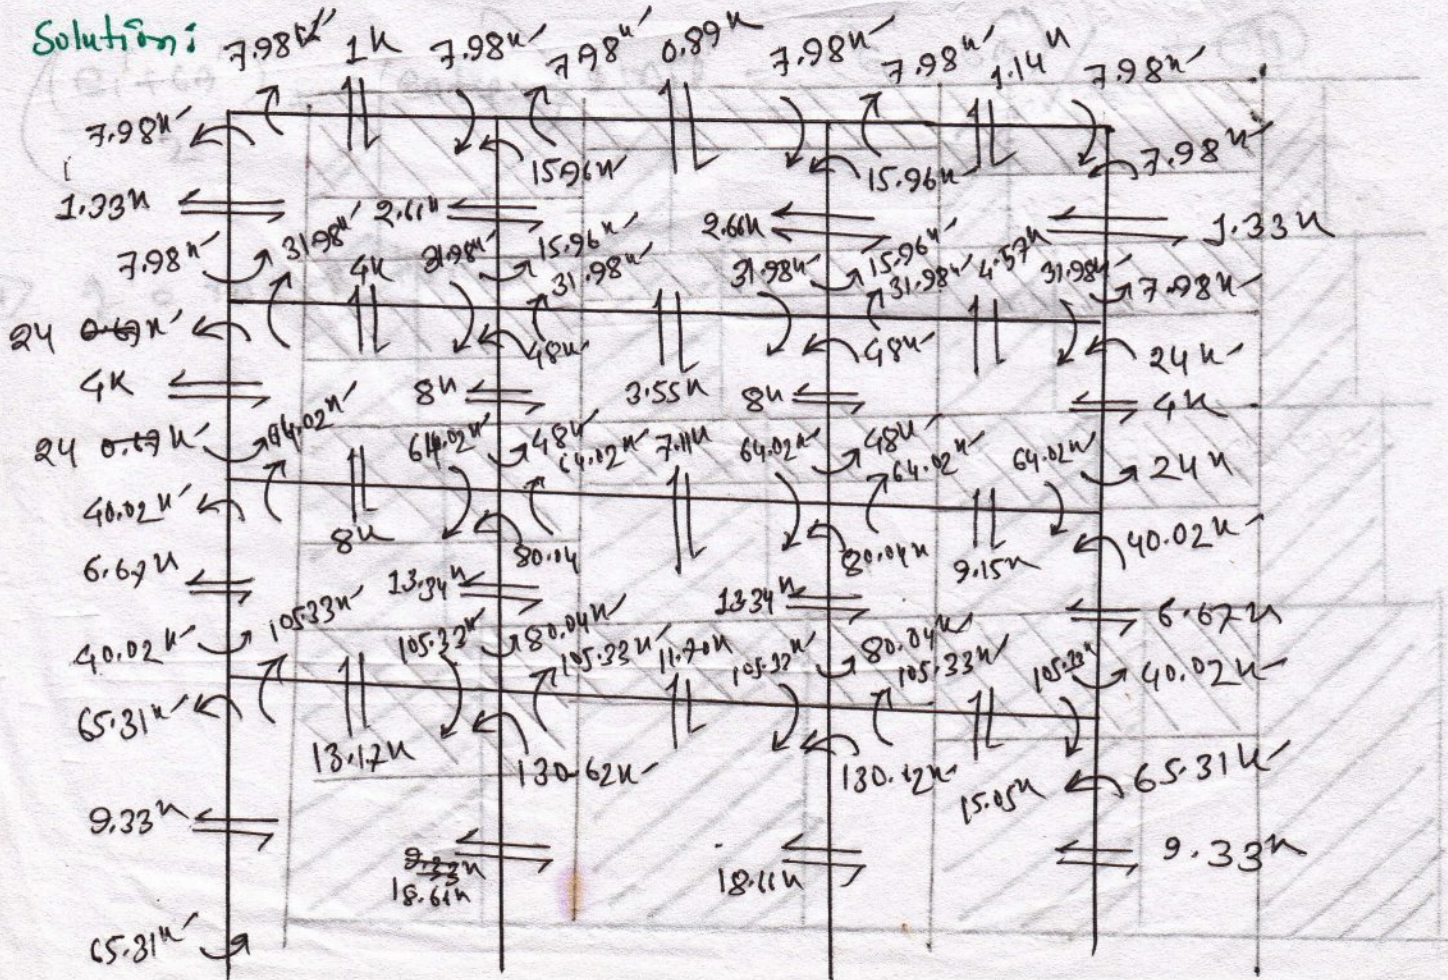 Solution:
7.98k' 1k 7.98k' 7.98k' 0.89k 7.98k' 7.98k' 1.14k 7.98k'
7.98k' 15.96k' 15.96k' 7.98k'
1.33k 2.66k 2.66k 1.33k
7.98k' 31.98k' 4k 31.98k' 15.96k' 31.98k' 31.98k' 15.96k' 31.98k' 4.57k 31.98k' 7.98k'
24 k' 48k' 48k' 24k'
4k 8k 3.55k 8k 4k
24 k' 64.02k' 64.02k' 48k' 64.02k' 7.11k 64.02k' 48k' 64.02k' 64.02k' 24k
40.02k' 8k 80.04 80.04k' 9.15k 40.02k'
6.67k 13.34k 13.34k 6.67k
40.02k' 105.33k' 105.33k' 80.04k' 105.33k' 11.70k 105.33k' 80.04k' 105.33k' 105.33k' 40.02k'
65.31k' 13.17k 130.62k' 130.62k' 15.05k 65.31k'
9.33k 9.33k 18.61k 18.61k 9.33k
65.31k'